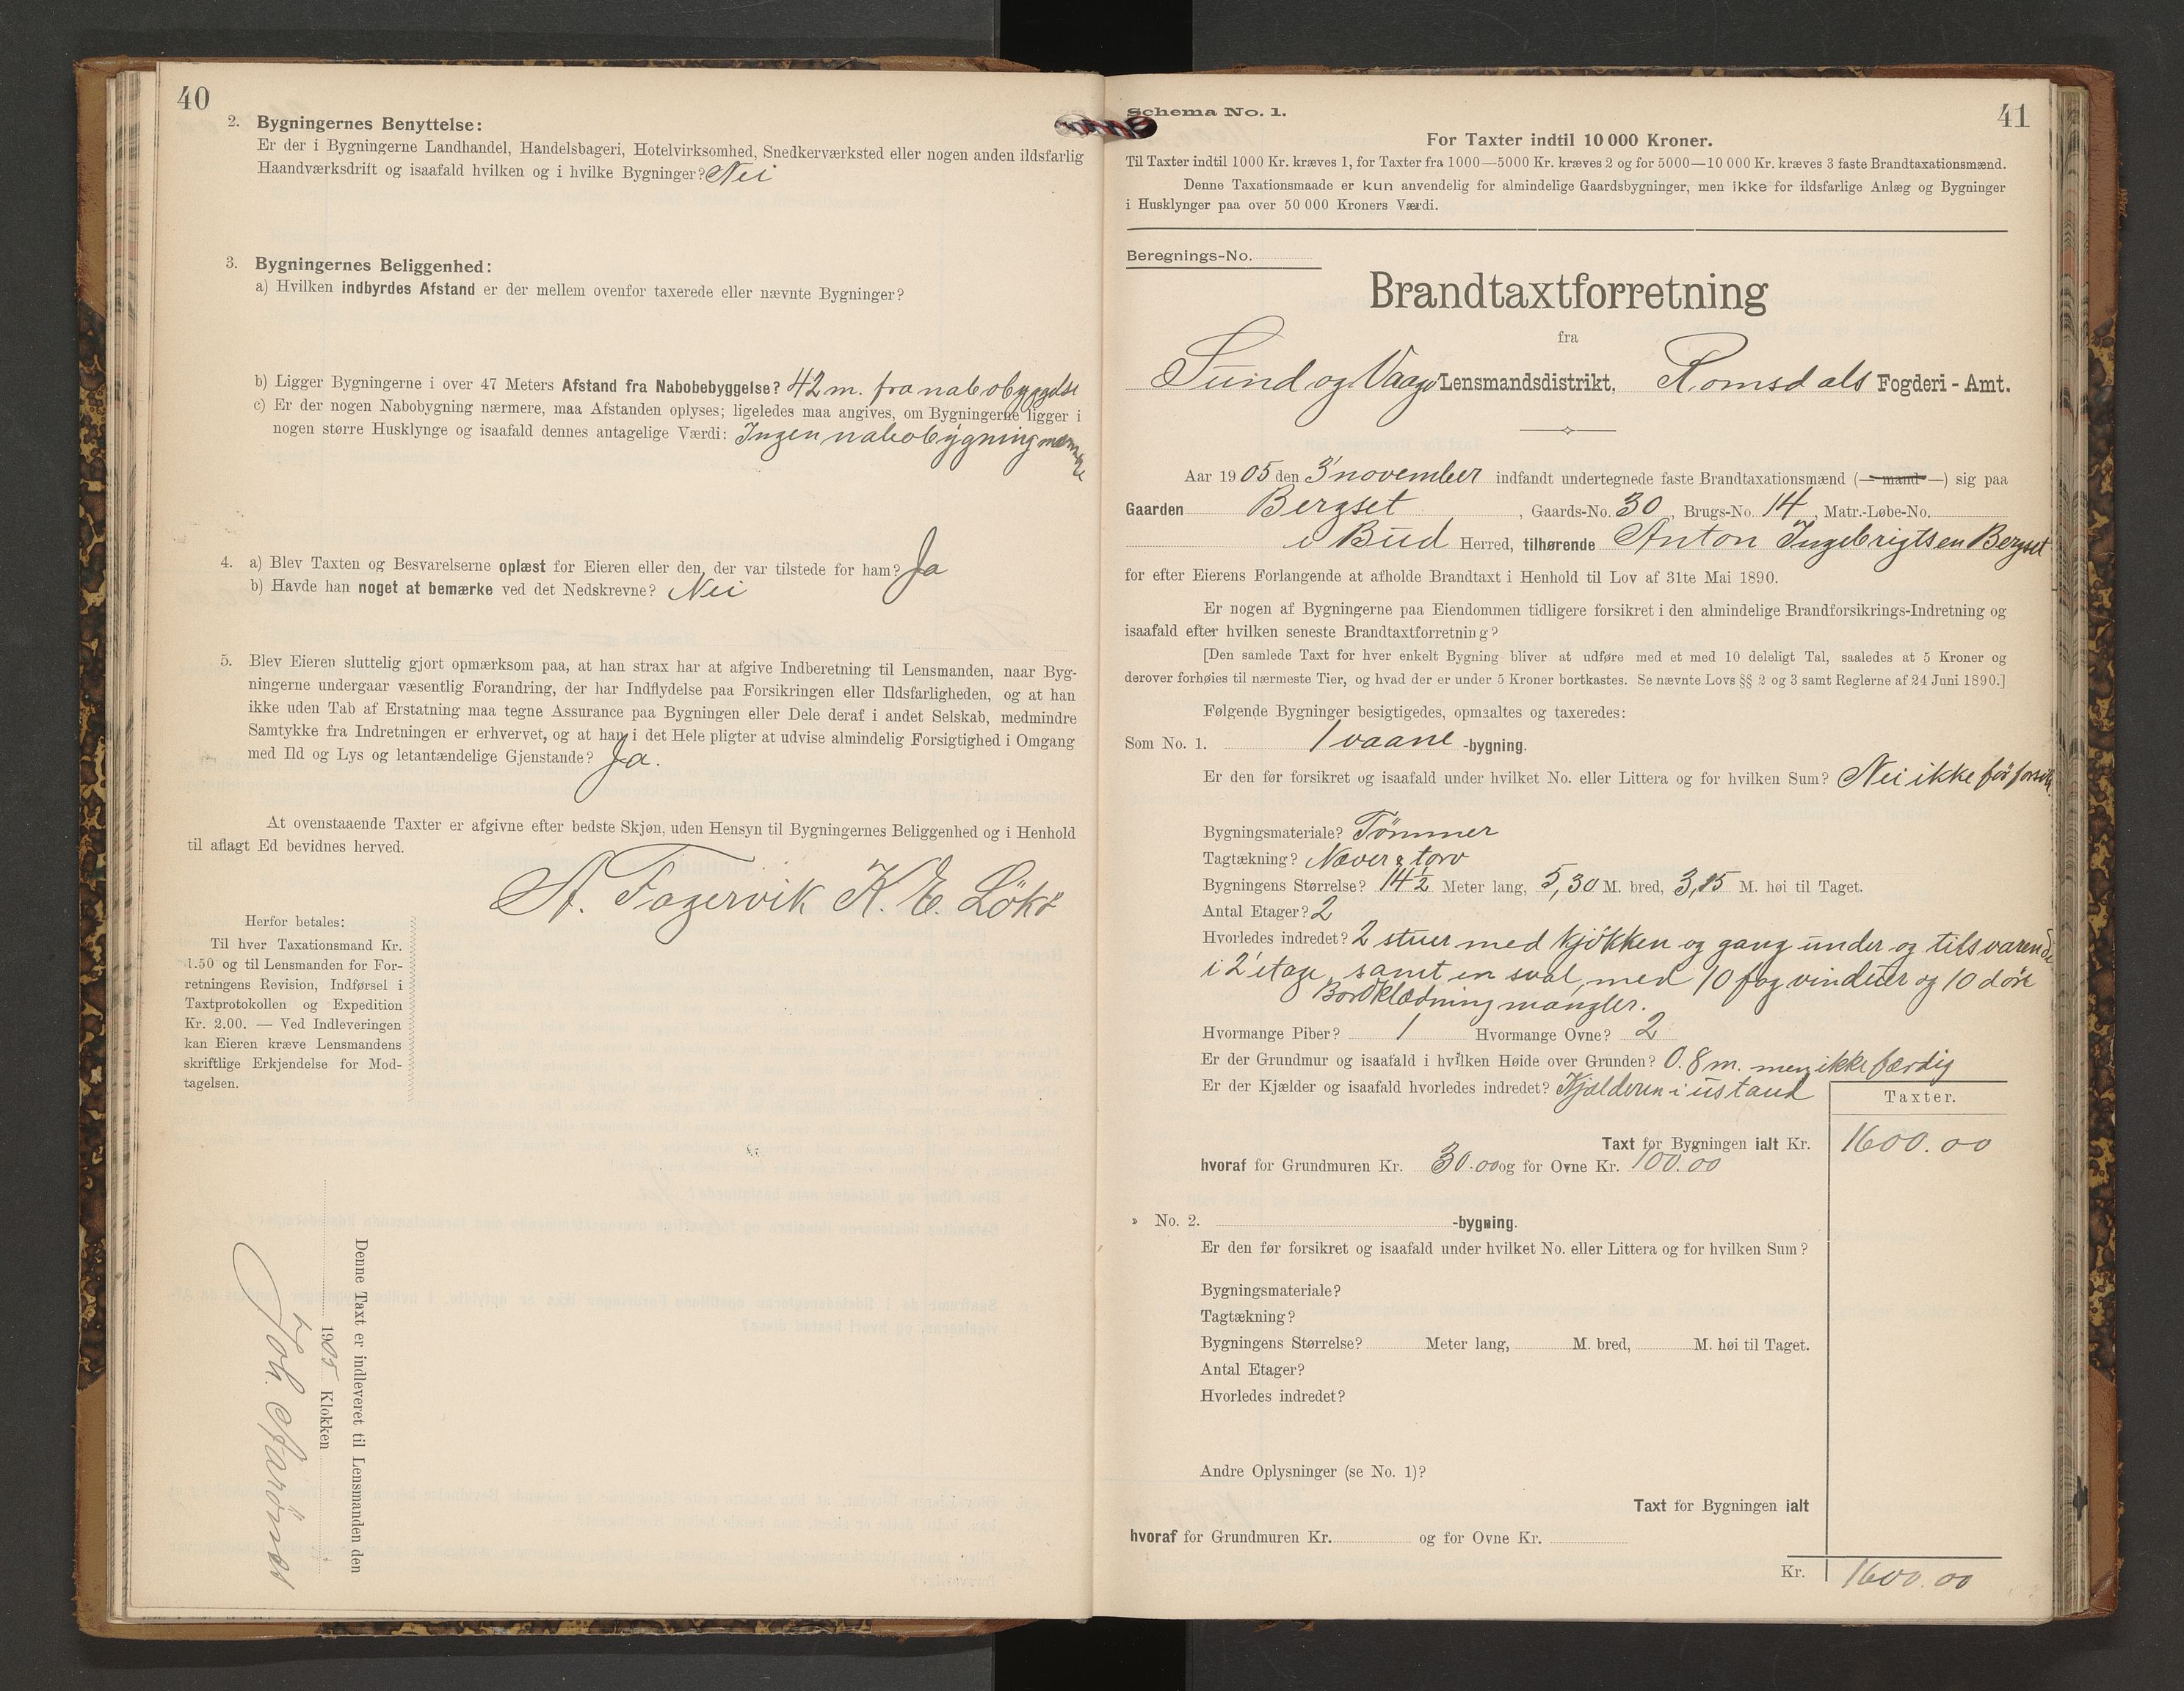 40
2. Bygningernes Benyttelse:
Er der i Bygningerne Landhandel, Handelsbageri, Hotelvirksomhed, Snedkerværksted eller nogen anden ildsfarlig
Haandværksdrift og isaafald hvilken og i hvilke Bygninger? Nei
3. Bygningernes Beliggenhed:
a) Hvilken indbyrdes Afstand er der mellem ovenfor taxerede eller nævnte Bygninger?
b) Ligger Bygningerne i over 47 Meters Afstand fra Nabobebyggelse? 42 m. fra nabobyggelse
c) Er der nogen Nabobygning nærmere, maa Afstanden oplyses; ligeledes maa angives, om Bygningerne ligger i
nogen større Husklynge og isaafald dennes antagelige Værdi: Ingen nabobygning nærmere
4. a) Blev Taxten og Besvarelserne oplæst for Eieren eller den, der var tilstede for ham? Ja
b) Havde han noget at bemærke ved det Nedskrevne? Nei
5. Blev Eieren sluttelig gjort opmærksom paa, at han strax har at afgive Indberetning til Lensmanden, naar Byg-
ningerne undergaar væsentlig Forandring, der har Indflydelse paa Forsikringen eller Ildsfarligheden, og at han
ikke uden Tab af Erstatning maa tegne Assurance paa Bygningen eller Dele deraf i andet Selskab, medmindre
Samtykke fra Indretningen er erhvervet, og at han i det Hele pligter at udvise almindelig Forsigtighed i Omgang
med Ild og Lys og letantændelige Gjenstande? Ja.
At ovenstaaende Taxter er afgivne efter bedste Skjøn, uden Hensyn til Bygningernes Beliggenhed og i Henhold
til aflagt Ed bevidnes herved.
A. Fagervik K. E. Lökö
Herfor betales:
Til hver Taxationsmand Kr.
1.50 og til Lensmanden for For-
retningens Revision, Indførsel i
Taxtprotokollen og Expedition
Kr. 2.00. — Ved Indleveringen
kan Eieren kræve Lensmandens
skriftlige Erkjendelse for Mod-
tagelsen.
Denne Taxt er indleveret til Lensmanden den
1905 Klokken
Joh.
41
Schema No. 1.
For Taxter indtil 10 000 Kroner.
Til Taxter indtil 1000 Kr. kræves 1, for Taxter fra 1000—5000 Kr. kræves 2 og for 5000—10 000 Kr. kræves 3 faste Brandtaxationsmænd.
Denne Taxationsmaade er kun anvendelig for almindelige Gaardsbygninger, men ikke for ildsfarlige Anlæg og Bygninger
i Husklynger paa over 50 000 Kroners Værdi.
Beregnings-No.
Brandtaxtforretning
fra
Sund og Vaagø Lensmandsdistrikt, Romsdals Fogderi - Amt.
Aar 1905 den 3' november indfandt undertegnede faste Brandtaxationsmænd (— mand —) sig paa
Gaarden Bergset, Gaards-No. 30, Brugs-No. 14, Matr.-Løbe-No.
i Bud Herred, tilhørende Anton Ingebrigtsen Bergset
for efter Eierens Forlangende at afholde Brandtaxt i Henhold til Lov af 31te Mai 1890.
Er nogen af Bygningerne paa Eiendommen tidligere forsikret i den almindelige Brandforsikrings-Indretning og
isaafald efter hvilken seneste Brandtaxtforretning?
[Den samlede Taxt for hver enkelt Bygning bliver at udføre med et med 10 deleligt Tal, saaledes at 5 Kroner og
derover forhøies til nærmeste Tier, og hvad der er under 5 Kroner bortkastes. Se nævnte Lovs §§ 2 og 3 samt Reglerne af 24 Juni 1890.]
Følgende Bygninger besigtigedes, opmaaltes og taxeredes:
Som No. 1. 1 vaane -bygning.
Er den før forsikret og isaafald under hvilket No. eller Littera og for hvilken Sum? Nei ikke för forsik.
Bygningsmateriale? Tömmer
Tagtækning? Næver & torv
Bygningens Størrelse? 14½ Meter lang, 5,30 M. bred, 3,85 M. høi til Taget.
Antal Etager? 2
Hvorledes indredet? 2 stuer med kjökken og gang under og tilsvarende
i 2' etage, samt en sval, med 10 fag vinduer og 10 döre
Bordklædning mangler.
Hvormange Piber? 1 Hvormange Ovne? 2
Er der Grundmur og isaafald i hvilken Høide over Grunden? 0.8 m. men ikke færdig
Er der Kjælder og isaafald hvorledes indredet? Kjælderen i ustand
Taxter.
Taxt for Bygningen ialt Kr. 1600.00
hvoraf for Grundmuren Kr. 30.00 og for Ovne Kr. 100.00
» No. 2. -bygning.
Er den før forsikret og isaafald under hvilket No. eller Littera og for hvilken Sum?
Bygningsmateriale?
Tagtækning?
Bygningens Størrelse? Meter lang, M. bred, M. høi til Taget.
Antal Etager?
Hvorledes indredet?
Andre Oplysninger (se No. 1)?
Taxt for Bygningen ialt
hvoraf for Grundmuren Kr. og for Ovne Kr.
Kr. 1600.00